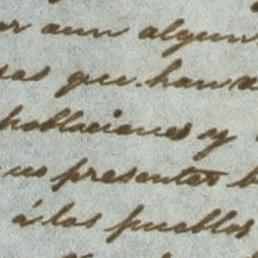 ar aun algun
sas que han
poblaciones y
presentes
á los pueblos